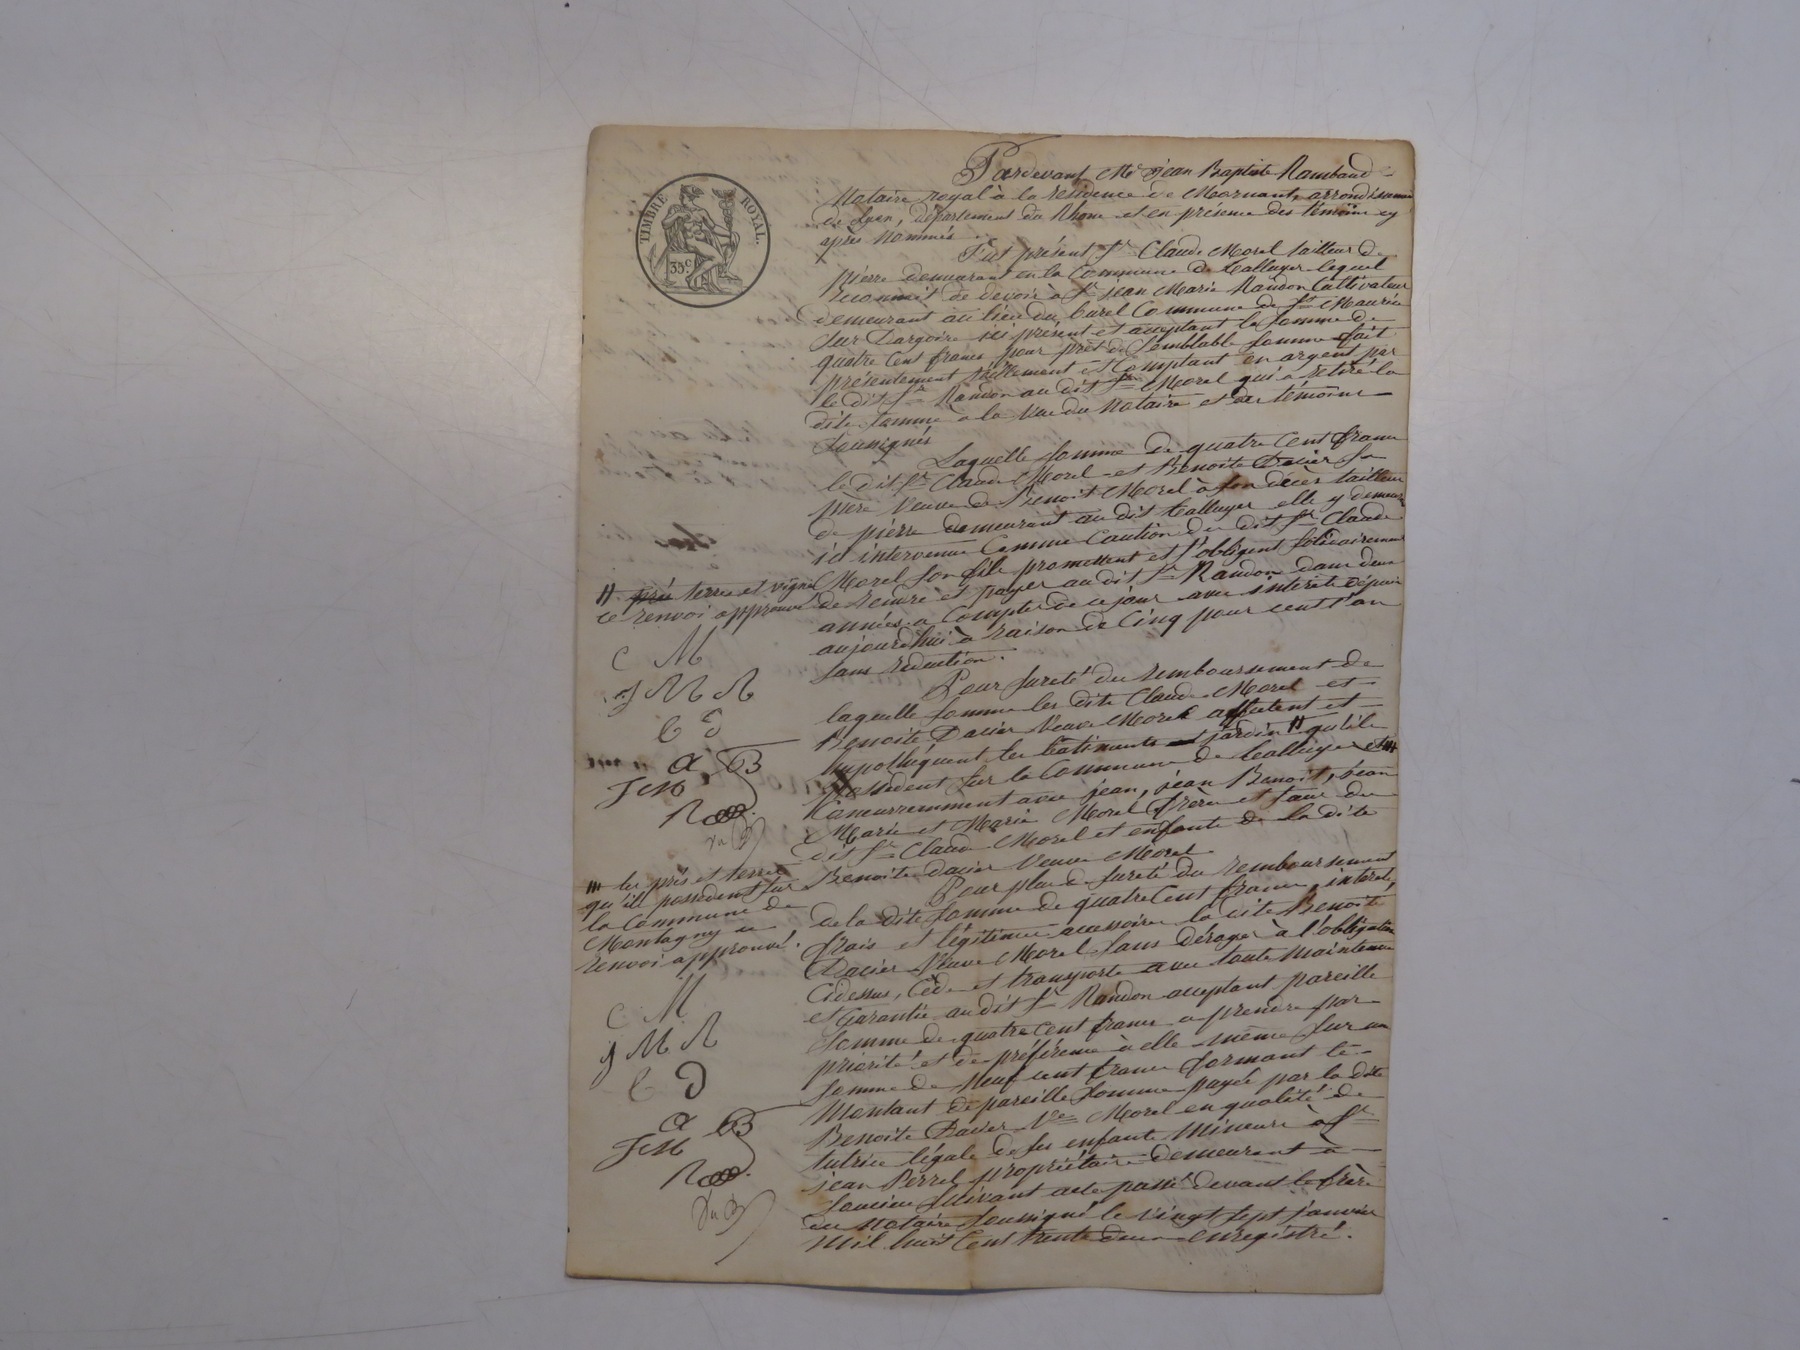 TIMBRE ROYAL.
35 c
Pardevant Me jean Baptiste Rambaud
Notaire royal à la residence de Mornant, arrondissement
de Lyon, département du Rhone et en présence des témoins cy
après nommés
Fut présent Sr Claude Morel tailleur de
pierre demeurant en la Commune de Talluyer lequel
reconnait de devoir à Sr jean Marie Randon Cultivateur
demeurant au lieu du burel Commune de St Maurice
Sur Dargoire ici présent et acceptant la Somme de
quatre Cent francs pour prêt de Semblable Somme fait
présentement réellement et Comptant en argent par
le dit Sr Randon au dit Sr Morel qui a retiré la
dite Somme à la Vue du Notaire et des témoins
Soussignés
Laquelle Somme de quatre Cent francs
le dit Sr Claude Morel et Benoite Dacier Sa
mère Veuve de Benoit Morel à Son décès tailleur
de pierre demeurant au dit talluyer elle y demeure
ici intervenue Comme Caution du dit Sr Claude
Morel Son fils promettent et S'obligent Solidairement
de rendre et payer au dit Sr Randon dans deux
années a Compter de ce jour avec interets depuis
aujourdhui à raison de Cinq pour cent l'an
Sans réduction.
Pour Sureté du remboursement de
laquelle Somme les dits Claude Morel et
Benoite Dacier Veuve Morel affectent et
hypothéquent les batiments et jardin # qu'ils
possedent Sur la Commune de talluyer et #
Concurremment avec jean, jean Benoit, jean
Marie et Marie Morel frères et Sœur du
dit Sr Claude Morel et enfants de la dite
Benoite dacier Veuve Morel
Pour plus de Sureté du remboursement
de la dite Somme de quatre Cent francs, interets,
frais et légitimes accessoires la dite Benoite
Dacier Veuve Morel Sans déroger à l'obligation
Cidessus, Cède et transporte avec toute maintenue
et Garantie au dit Sr Randon acceptant pareille
Somme de quatre cent francs a prendre par
priorité et de préférence à elle même Sur un
Somme de Neuf cent francs formant le
Montant de pareille Somme payée par la dite
Benoite Dacier Ve Morel en qualité de
tutrice légale de Ses enfants Mineurs à Sr
jean Perrel propriétaire demeurant à
Soucieu Suivant acte passé devant le frère
du Notaire Soussigné le vingt Sept janvier
Mil huit Cent trente deux enregistré.
# pré terres et vignes
ce renvoi approuvé
C M
J M R
B D
a B
JCM
R
# les prés et terres
qu'ils possedent Sur
la Commune de
Montagny ce
renvoi approuvé.
C M
J M R
B D
a B
JCM
R